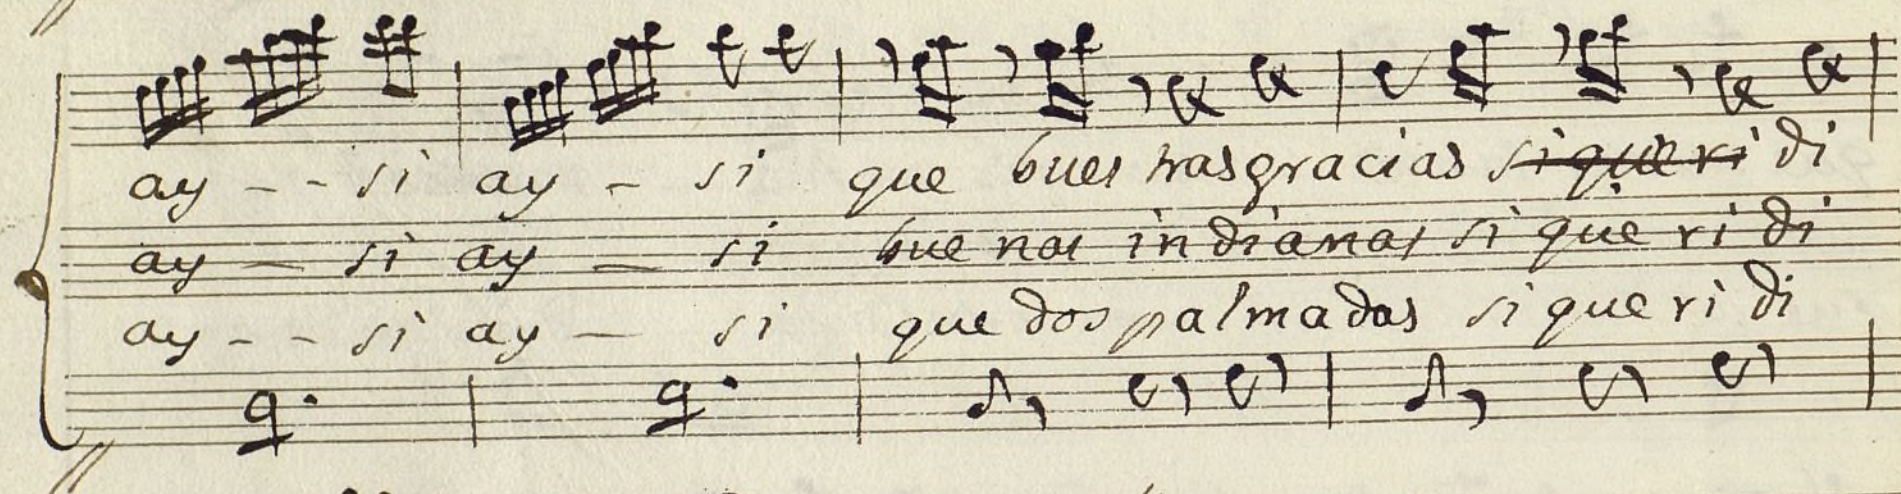 ay - - si ay - si que bues tras gracias si que ri di
ay - si ay - si bue nas indianas si que ri di
ay - - si ay - si que dos palmadas si que ri di